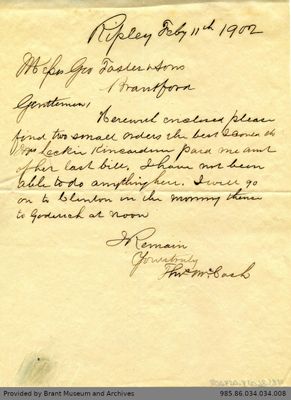 Ripley Feby 11th 1902
Messrs Geo Foster & Sons
Brantford
Gentlemen,
Herewith enclosed please
find two small orders the best I could do
Mrs Leckie Kincardine paid me amt
of her last bill. I have not been
able to do anything here. I will go
on to Clinton in the morning thence
to Goderich at noon
I Remain
Yours truly
Thos McCosh
Provided by Brant Museum and Archives
985.86.034.034.008